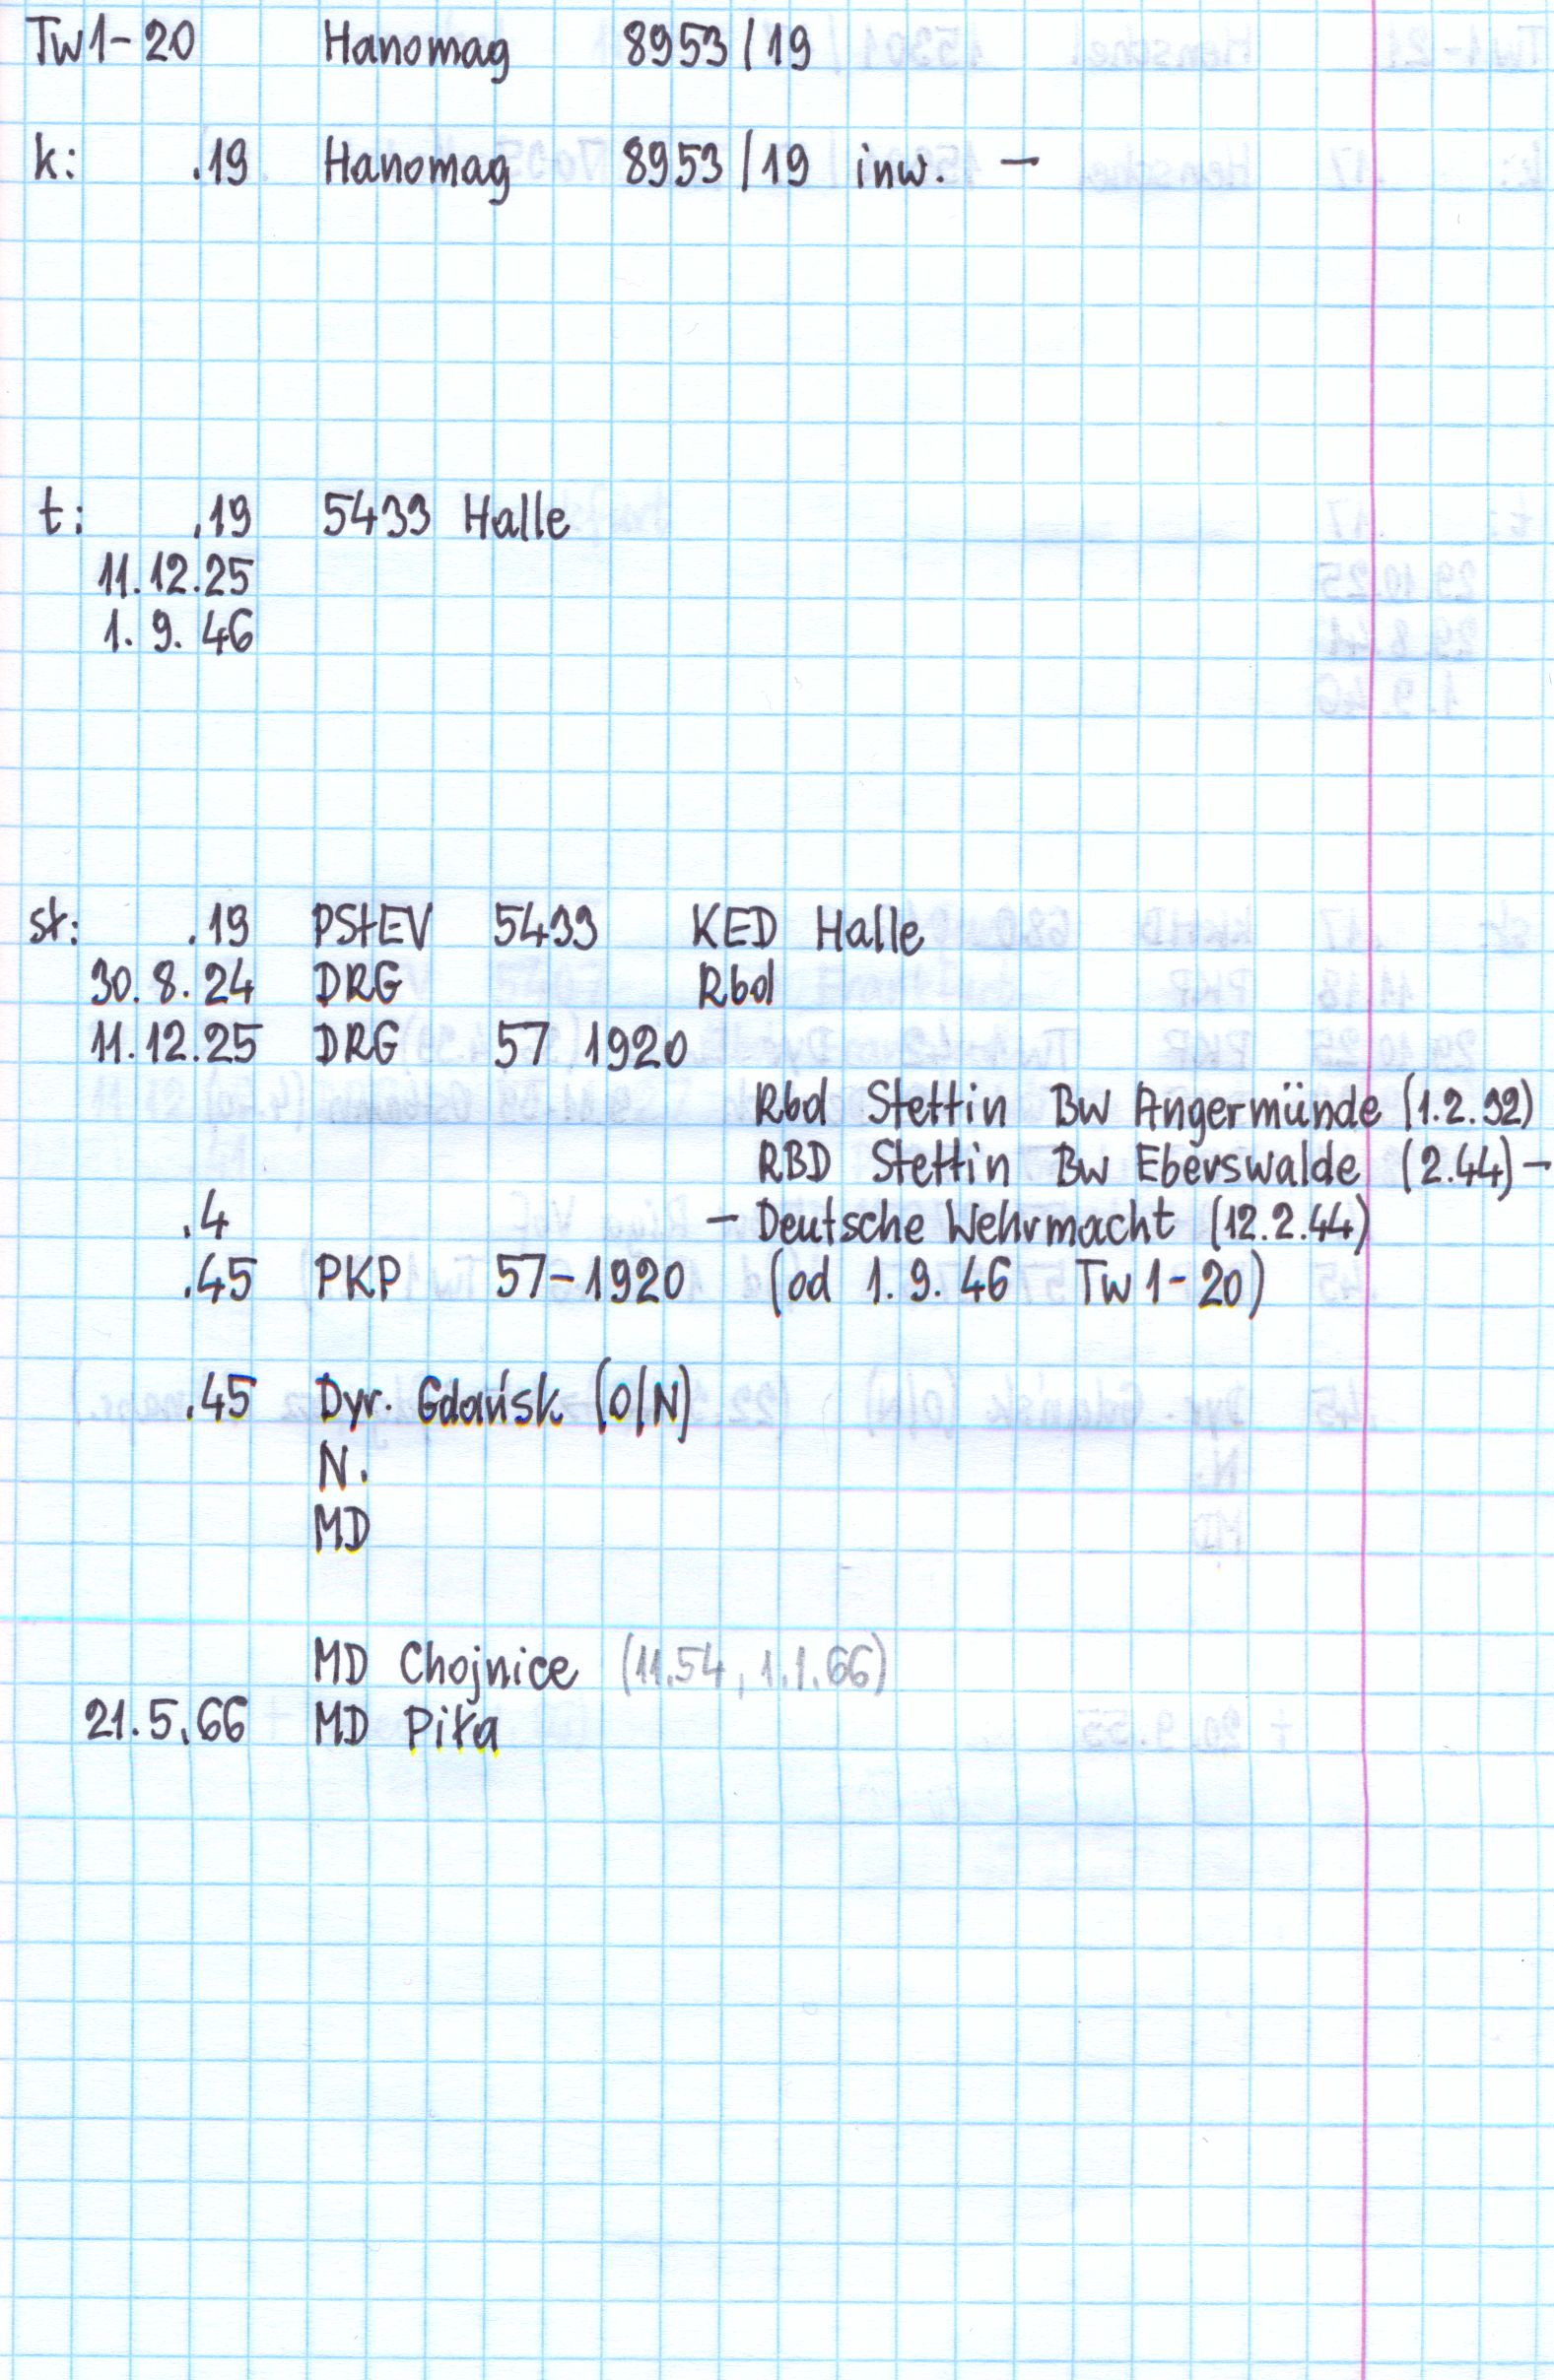 Tw1-20 Hanomag 8953/19
k: .19 Hanomag 8953/19 inw. —
t: .19 5433 Halle
11.12.25
1. 9. 46
st: .19 PStEV 5433 KED Halle
30. 8. 24 DRG Rbd
11.12.25 DRG 57 1920
Rbd Stettin Bw Angermünde (1.2.32)
RBD Stettin Bw Eberswalde (2.44) —
.4 — Deutsche Wehrmacht (12.2.44)
.45 PKP 57-1920 (od 1. 9. 46 Tw1-20)
.45 Dyr. Gdańsk (O/N)
N.
MD
MD Chojnice (11.54, 1.1.66)
21.5.66 MD Piła